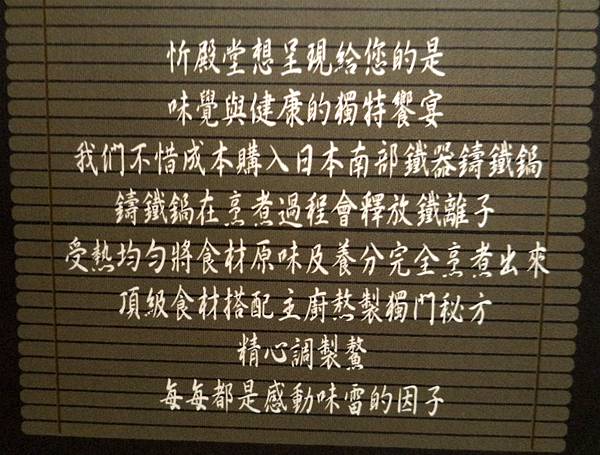 忻殿堂想呈現給您的是
味覺與健康的獨特饗宴
我们不惜成本購入日本南部鐵器鑄鐵鍋
鑄鐵鍋在烹煮過程會釋放鐵離子
受熱均勻將食材原味及養分完全烹煮出來
頂級食材搭配主廚熬製獨門秘方
精心調製鰲
每每都是感動味雷的因子